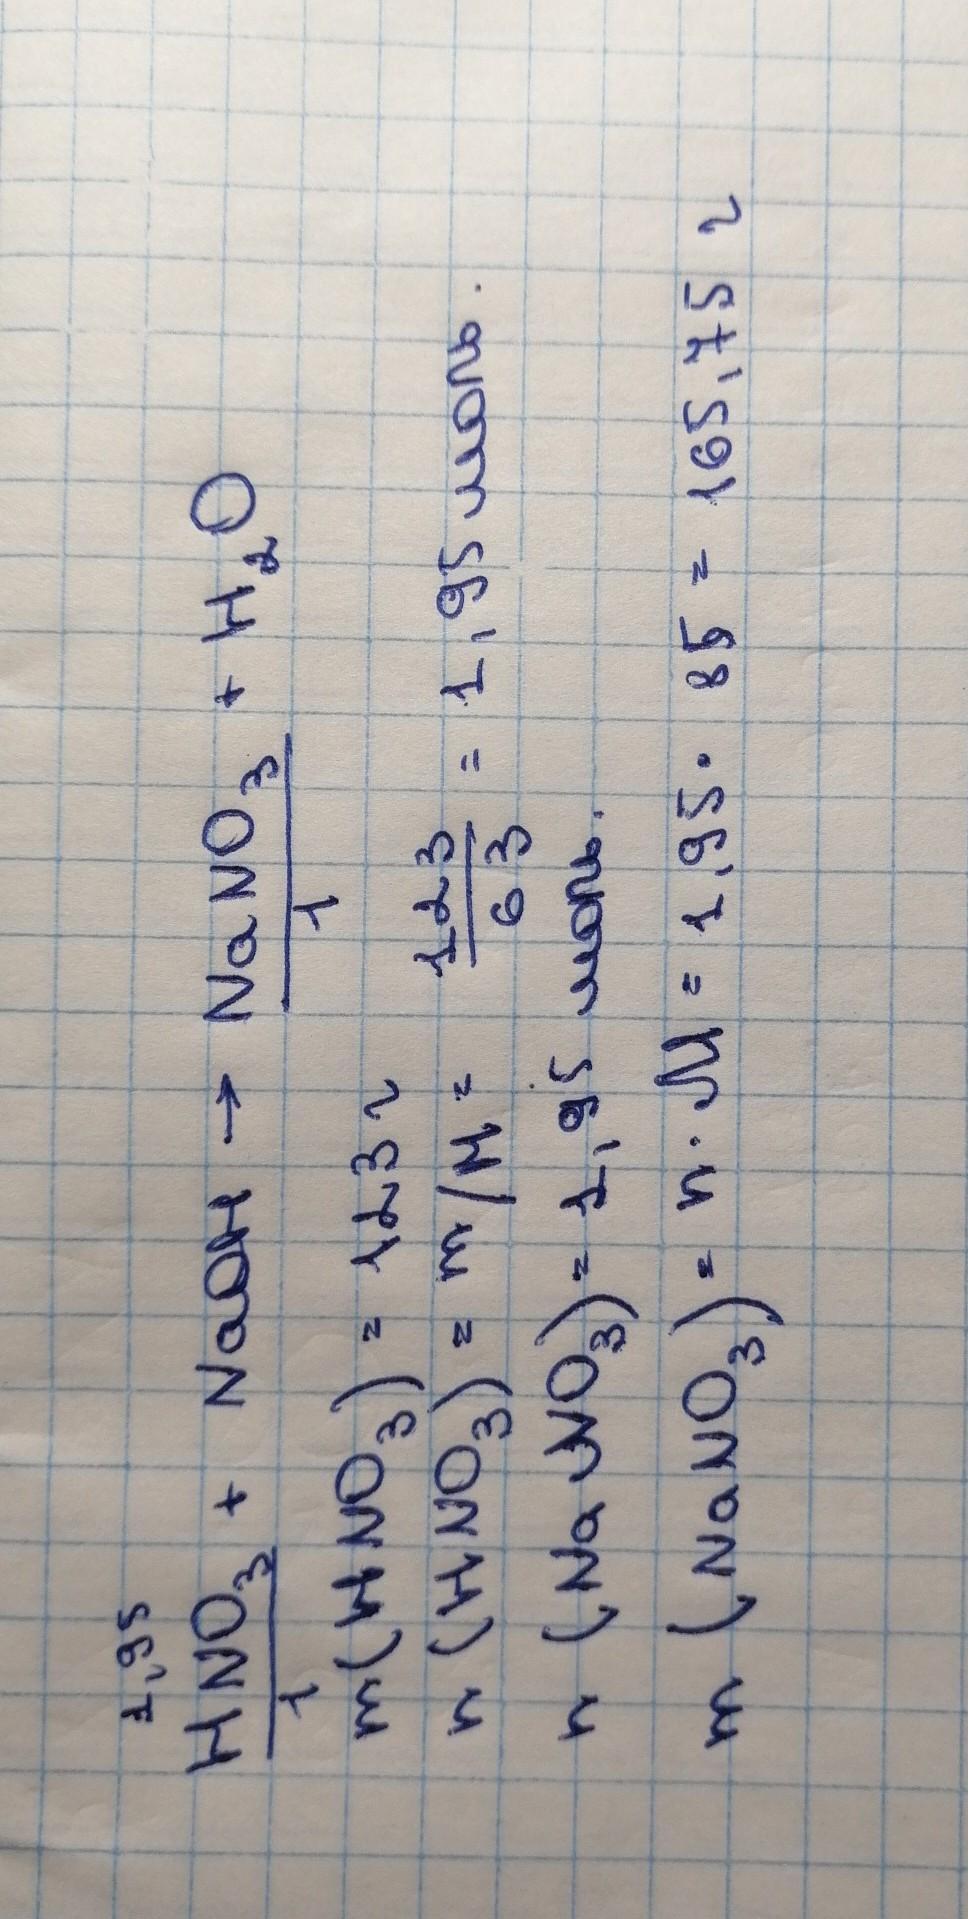 1,95
HNO3 + NaOH → NaNO3 + H2O
1 1
m(HNO3) = 123 г
n(HNO3) = m/M = 123/63 = 1,95 моль.
n(NaNO3) = 1,95 моль.
m(NaNO3) = n · M = 1,95 · 85 = 165,75 г